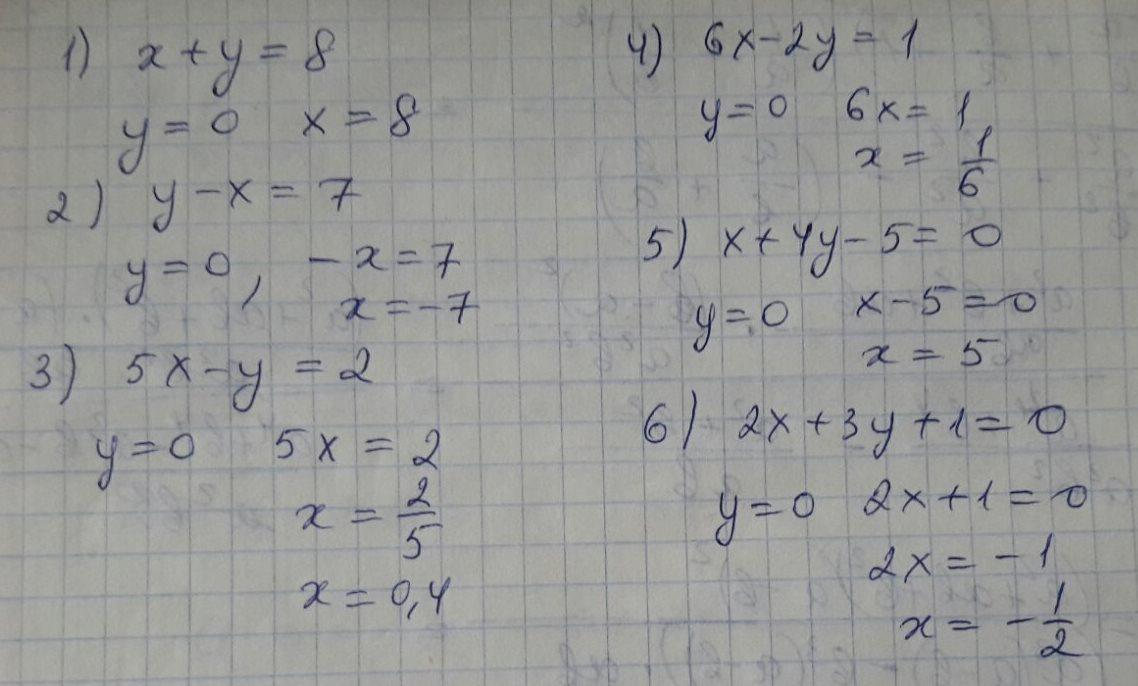 1) x + y = 8
y = 0 x = 8
2) y - x = 7
y = 0, - x = 7
x = -7
3) 5x - y = 2
y = 0 5x = 2
x = 2/5
x = 0,4
4) 6x - 2y = 1
y = 0 6x = 1
x = 1/6
5) x + 4y - 5 = 0
y = 0 x - 5 = 0
x = 5
6) 2x + 3y + 1 = 0
y = 0 2x + 1 = 0
2x = - 1
x = - 1/2